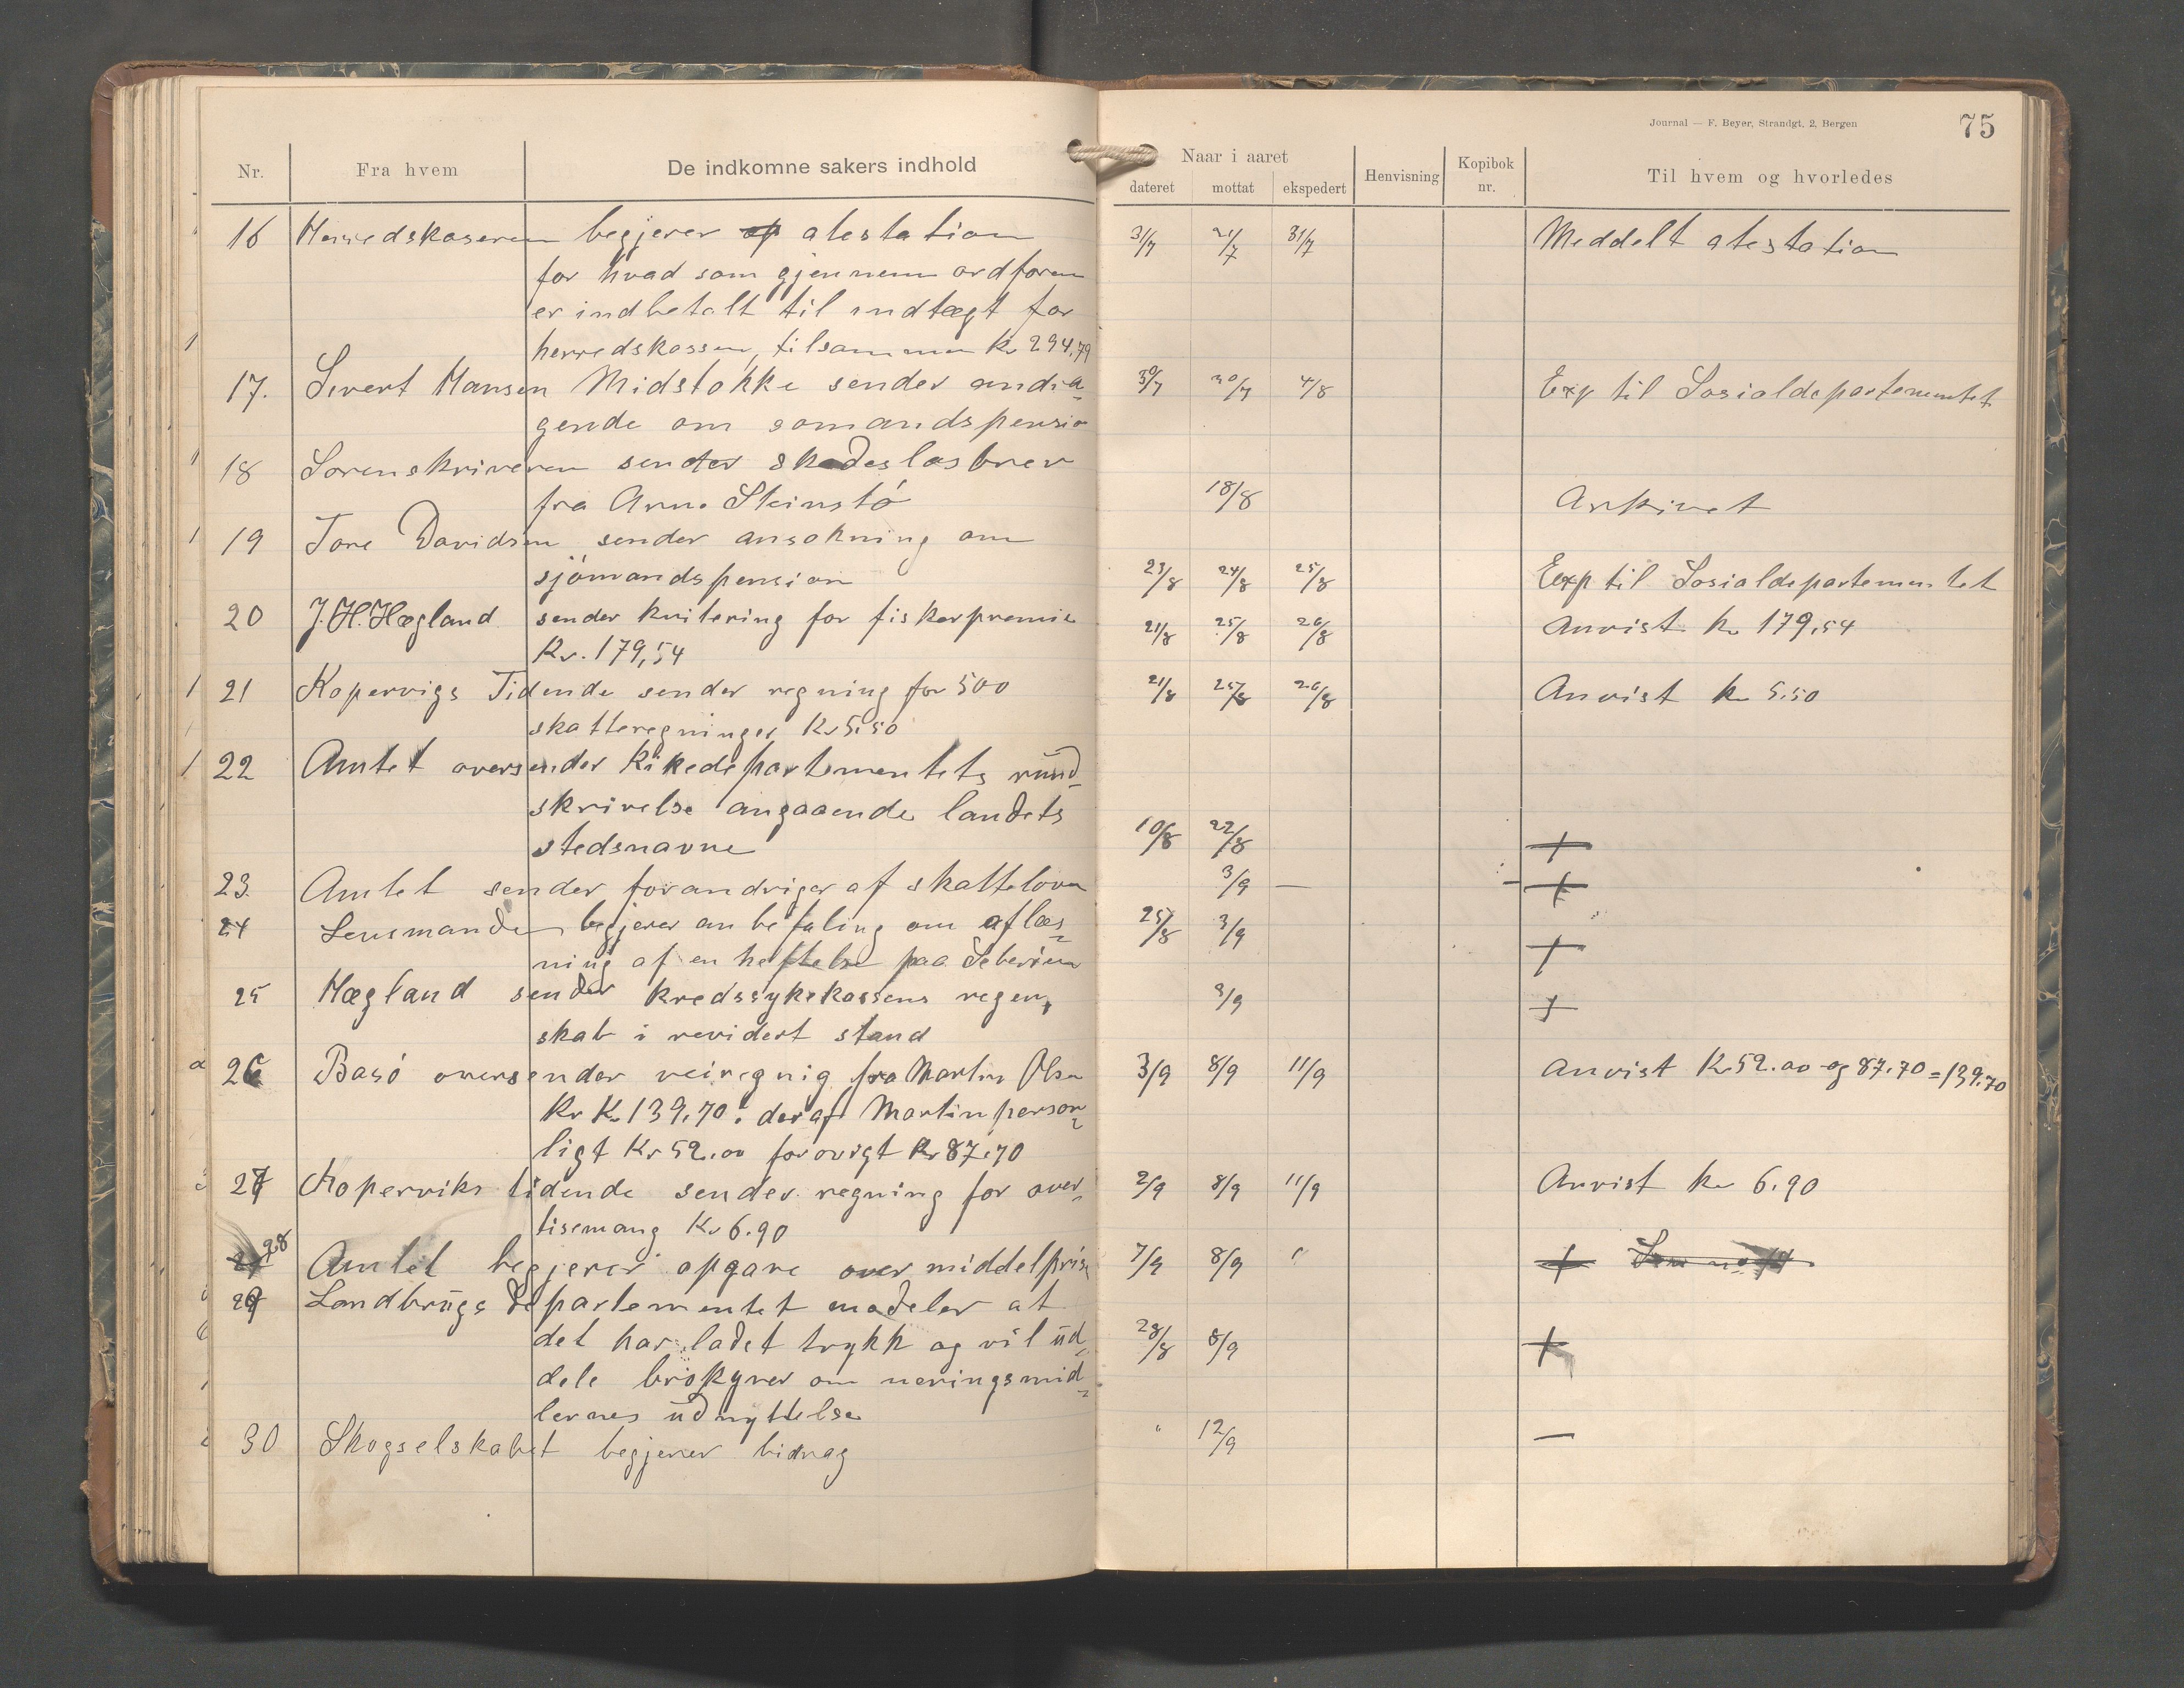 Journal — F. Beyer, Strandgt. 2, Bergen
75
Nr. Fra hvem De indkomne sakers indhold Naar i aaret Henvisning Kopibok nr. Til hvem og hvorledes
dateret mottat ekspedert
16 Herredskaseren begjerer op atestation 31/7 31/7 31/7 Meddelt atestation
for hvad som gjennem ordforen
er indbetalt til indtægt for
herredskassen, tilsammen Kr 294,79
17. Sivert Hansen Midstokke sender andra- 30/7 30/7 4/8 Exp til Sosialdepartementet
gende om somandspensio
18 Sorenskriveren sender skadeslosbrev
fra Arne Steinstø 18/8 Arkivet
19 Tore Davidsen sender ansokning om
sjömandspension 23/8 24/8 25/8 Exp til Sosialdepartementet
20 J.H. Hægland sender kvitering for fiskerpremie 21/8 25/8 26/8 Anvist kr 179,54
Kr. 179,54
21 Kopervigs Tidende sender regning for 500 21/8 25/8 26/8 Anvist kr 5.50
skatteregninger Kr 5.50
22 Amtet oversender Kikedepartementets rund-
skrivelse angaaende landets
stedsnavne 10/8 22/8 +
23. Amtet sender forandriger af skatteloven 3/9 — +
24 Lensmanden begjerer anbefaling om aflæs- 25/8 3/9 +
ning af en heftelse paa
25 Hægland sender kredssykekassens regen- 3/9 +
skab i revidert stand
26 Basö oversender veiregnig fra Martin Olsen 3/9 8/9 11/9 Anvist Kr 52.00 og 87.70 = 139.70
Kr Kr 139.70. deraf Martin person-
ligt Kr 52.00 forovrigt Kr 87.70
27 Koperviks tidende sender regning for aver- 2/9 8/9 11/9 Anvist kr 6.90
tisemang Kr 6.90
28 Amtet begjerer opgave over middelpris 7/9 8/9 +
29 Landbrugsdepartementet medeler at
det har ladet trykk og vil ud- 28/8 8/9 +
dele brokyrer om neringsmid-
lernes udnyttelse
30 Skogselskabet begjerer bidrag " 12/9 —